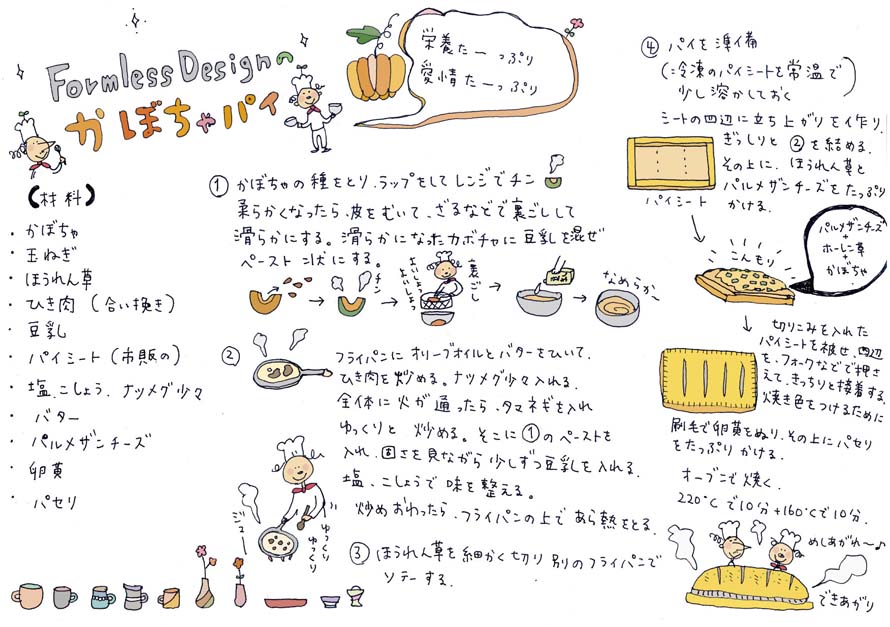 Formless Designの
かぼちゃパイ
栄養たーっぷり
愛情たーっぷり
【材料】
・かぼちゃ
・玉ねぎ
・ほうれん草
・ひき肉（合い挽き）
・豆乳
・パイシート（市販の）
・塩、こしょう、ナツメグ少々
・バター
・パルメザンチーズ
・卵黄
・パセリ
① かぼちゃの種をとり、ラップをしてレンジでチン
柔らかくなったら、皮をむいて、ざるなどで裏ごしして
滑らかにする。滑らかになったカボチャに豆乳を混ぜ
ペースト状にする。
チン
よいしょ
よいしょっ
裏ごし
なめらか〜
② フライパンにオリーブオイルとバターをひいて、
ひき肉を炒める。ナツメグ少々入れる。
全体に火が通ったら、タマネギを入れ
ゆっくりと炒める。そこに①のペーストを
入れ、固さを見ながら少しずつ豆乳を入れる。
塩、こしょうで味を整える。
炒めおわったら、フライパンの上であら熱をとる。
ジュー
ゆっくり
ゆっくり
③ ほうれん草を細かく切り別のフライパンで
ソテーする。
④ パイを準備
（冷凍のパイシートを常温で
少し溶かしておく）
シートの四辺に立ち上がりを作り、
ぎっしりと②を詰める。
その上に、ほうれん草と
パルメザンチーズをたっぷり
かける。
パイシート
こんもり
パルメザンチーズ
+
ホーレン草
+
かぼちゃ
切りこみを入れた
パイシートを被せ、四辺
を、フォークなどで押さ
えて、きっちりと接着する。
焼き色をつけるために
刷毛で卵黄をぬり、その上にパセリ
をたっぷりかける。
オーブンで焼く。
220℃で10分+160℃で10分。
めしあがれ〜♪
できあがり